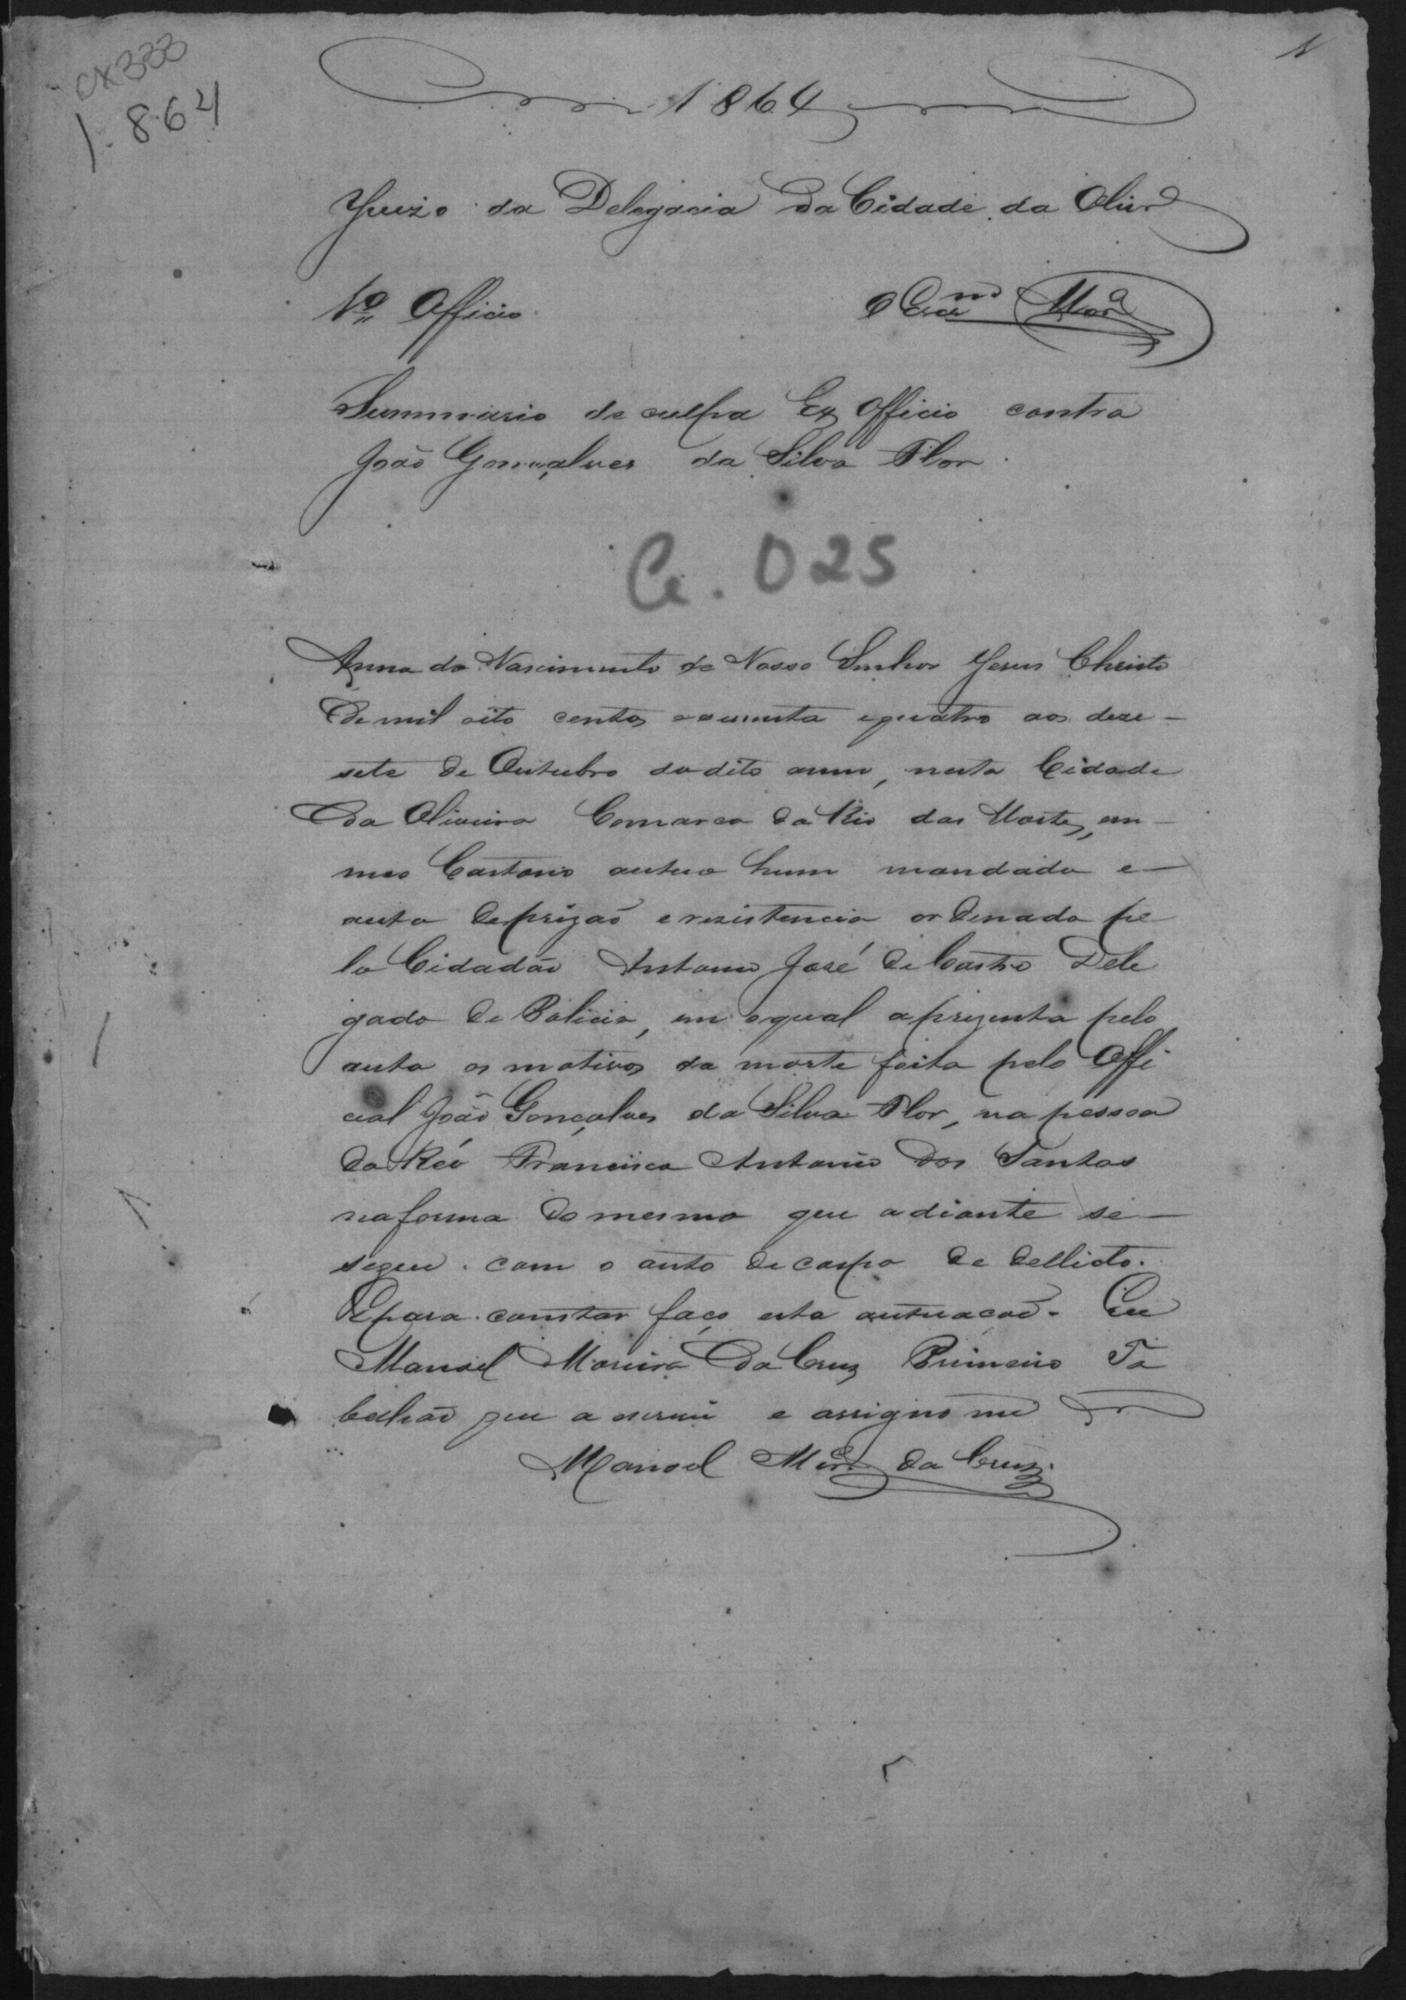 CX333
1.864
1
1864
Juizo da Delegacia da Cidade da Olivrª
1º Officio
O Escrm Morª
Summario de culpa Ex Officio contra
João Gonçalves da Silva Flor.
Cr. 025
Anno do Nascimento de Nosso Senhor Jesus Christo
de mil oito centos secenta e quatro aos deze-
sete de Outubro do dito anno, nesta Cidade
da Oliveira Comarca do Rio das Mortes, em
meo Cartorio autuo hum mandado e
auto de prizaõ e rezistencia ordenado pe
lo Cidadão Antonio José de Castro Dele
gado de Policia, em o qual aprezenta pelo
auto os motivos da morte feita pelo Offi
cial João Gonçalves da Silva Flor, na pessoa
do Reó Francisco Antonio dos Santos
na forma do mesmo que adiante se
segue. com o auto de corpo de dellicto.
E para constar faço esta autuacaõ. Eu
Manoel Moreira da Cruz Primeiro Ta
beliaõ que a escrevi e assigno me
Manoel Morª da Cruz.